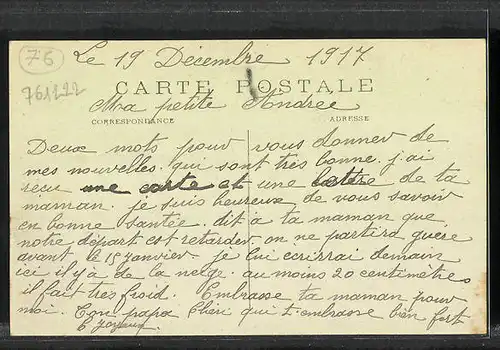 76
Le 19 Décembre 1917
CARTE POSTALE
761222
Ma petite Andrée
CORRESPONDANCE ADRESSE
Deux mots pour vous donner de
mes nouvelles. qui sont très bonne. j'ai
reçu une carte et une lettre de ta
maman. je suis heureux de vous savoir
en bonne santée. dit à ta maman que
notre départ est retarder. on ne partira guère
avant le 15 janvier je lui ecrirai demain
ici il y à de la neige. au moins 20 centimètres
il fait très froid. Embrasse ta maman pour
moi. Ton papa Chéri qui t'embrasse bien fort